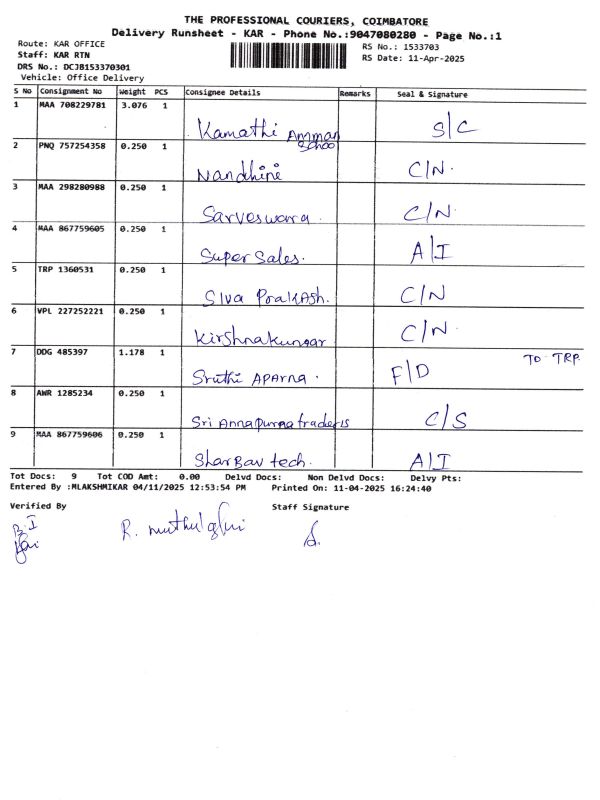 THE PROFESSIONAL COURIERS, COIMBATORE
Delivery Runsheet - KAR - Phone No.:9047080280 - Page No.:1
Route: KAR OFFICE
Staff: KAR RTN
DRS No.: DCJB153370301
Vehicle: Office Delivery
RS No.: 1533703
RS Date: 11-Apr-2025
S No Consignment No Weight PCS Consignee Details Remarks Seal & Signature
1 MAA 708229781 3.076 1 Kamathi Amman School S/C
2 PNQ 757254358 0.250 1 Nandhini C/N.
3 MAA 298280988 0.250 1 Sarveswara. C/N.
4 MAA 867759605 0.250 1 Super Sales. A/I
5 TRP 1360531 0.250 1 Siva Prakash. C/N
6 VPL 227252221 0.250 1 Kirshnakumar C/N.
7 DDG 485397 1.178 1 Sruthi Aparna. F/D TO TRP
8 AWR 1285234 0.250 1 Sri Annapurna traders C/S
9 MAA 867759606 0.250 1 Sharbav tech. A/I
Tot Docs: 9 Tot COD Amt: 0.00 Delvd Docs: Non Delvd Docs: Delvy Pts:
Entered By :MLAKSHMIKAR 04/11/2025 12:53:54 PM Printed On: 11-04-2025 16:24:40
Verified By Staff Signature